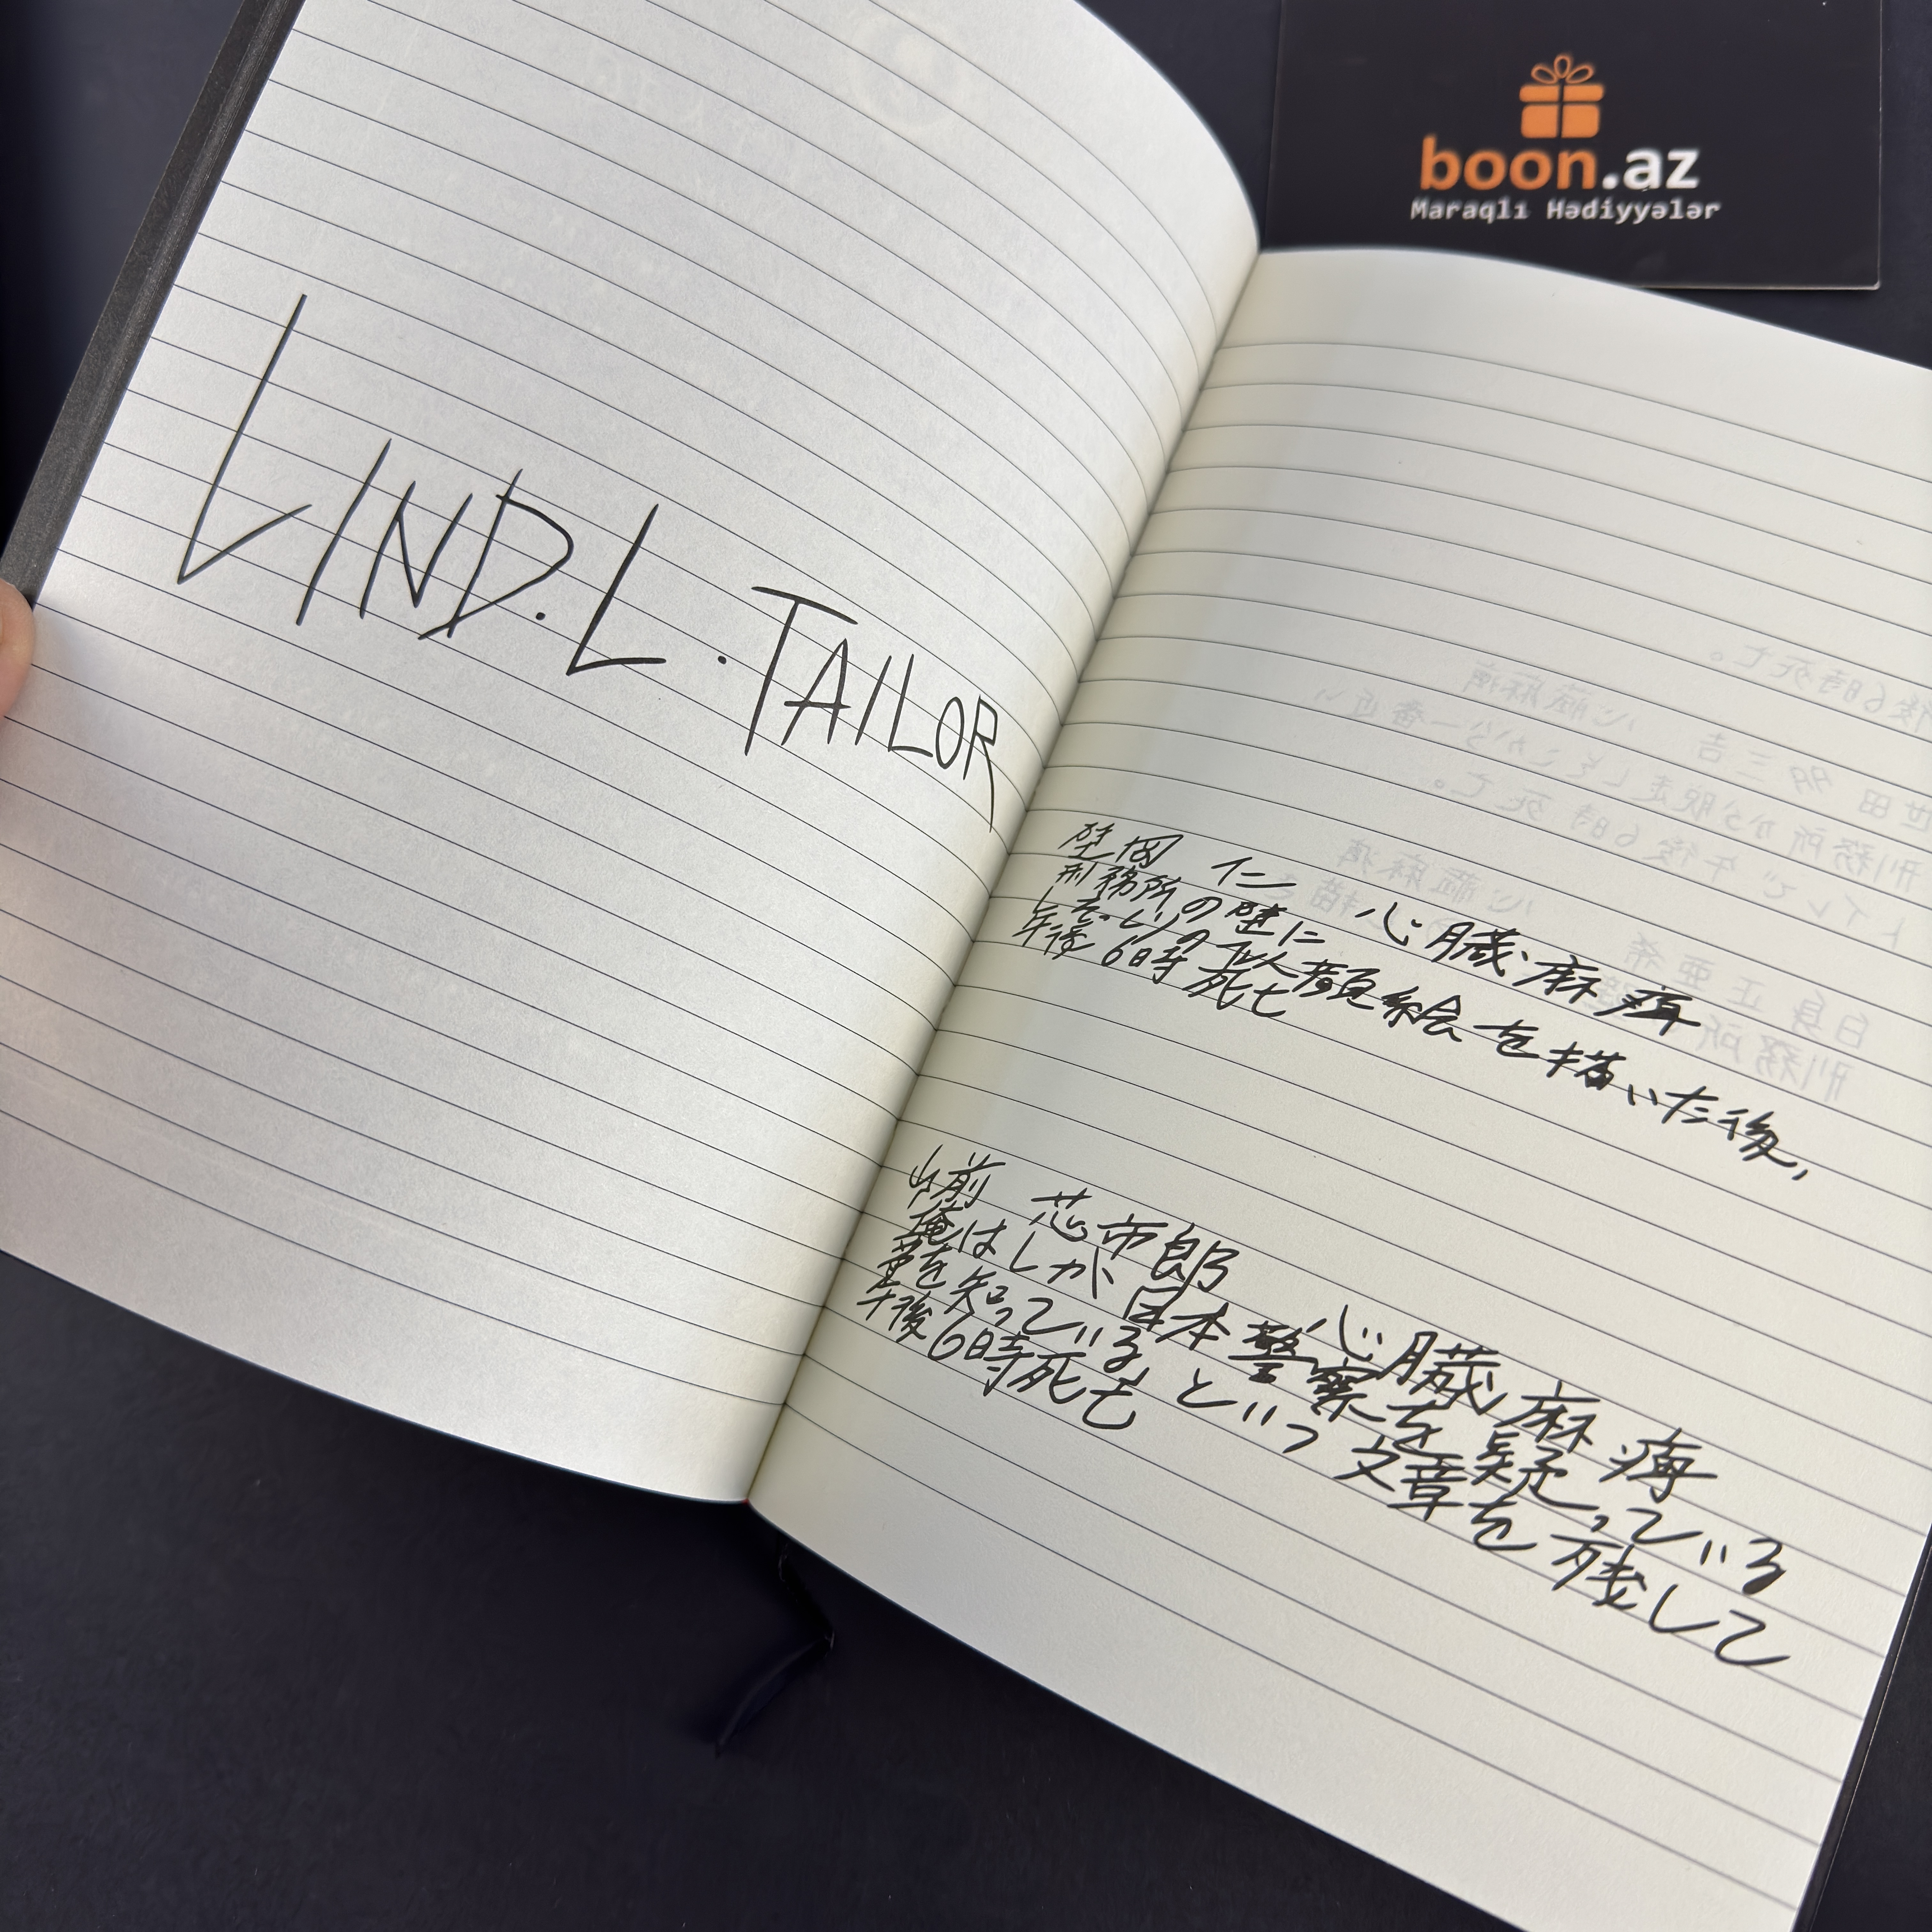 boon.az
Maraqlı Hədiyyələr
LIND.L.TAILOR
仁 心臓麻痺
刑務所の壁に
そっくりの似顔絵を描いた後,
午後6時死亡
山前 芯市郎 心臓麻痺
俺はしか 日本警察を疑っている
事を知っている, という文章を残して
午後6時死亡
後6時死亡。
世田 三吉 心臓麻痺
刑務所から脱走しそこから一番近い
トイレで午後6時死亡。
白身 正亜希 心臓麻痺
刑務所